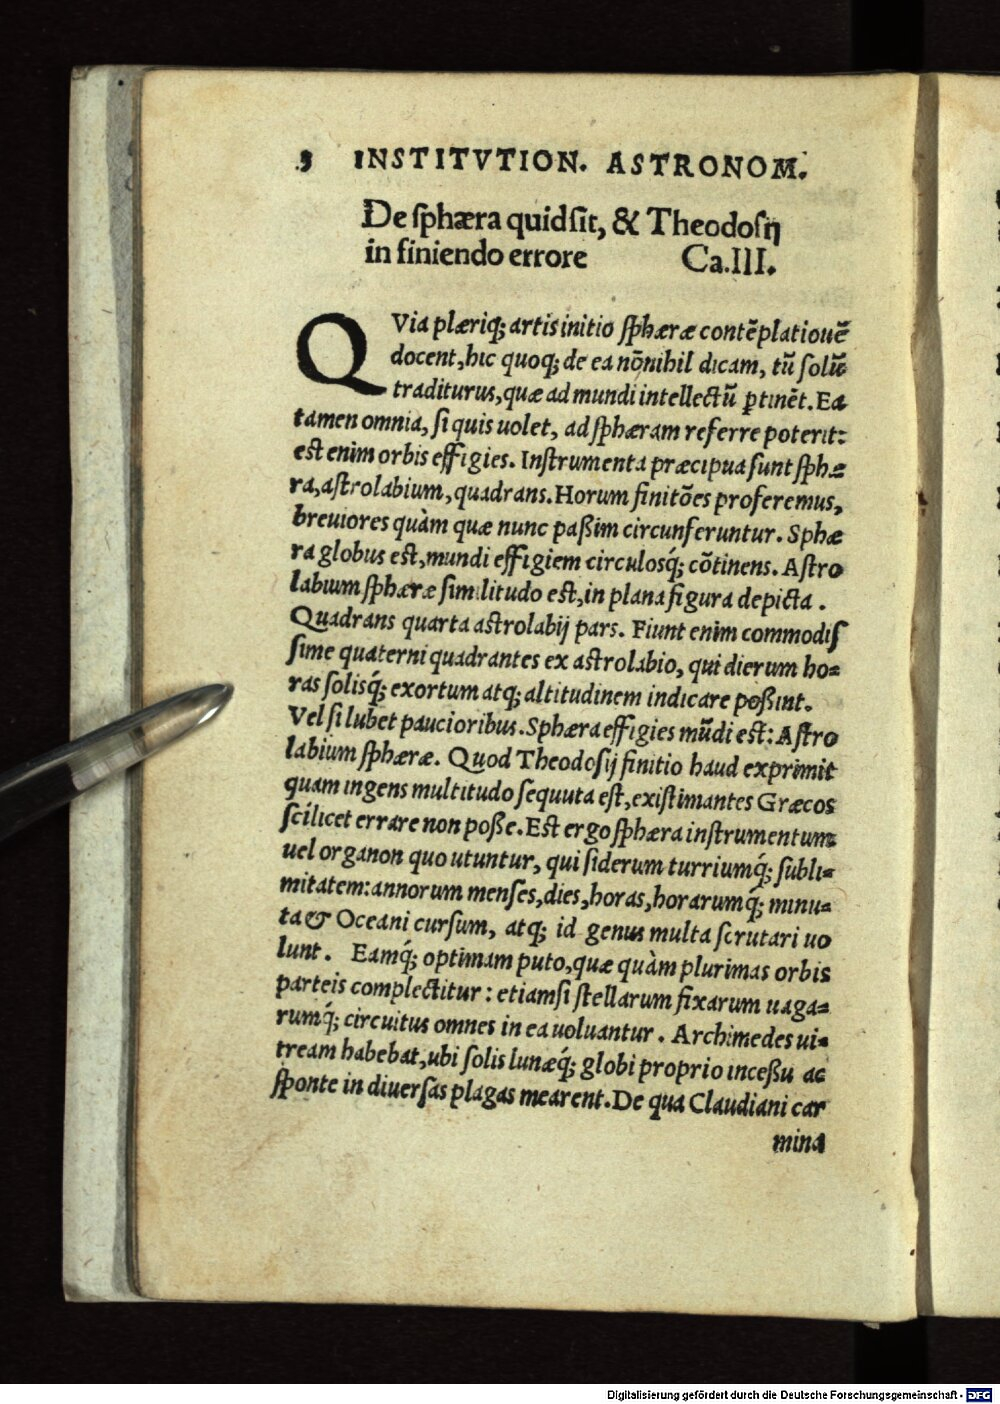 3 INSTITVTION. ASTRONOM.
De sphæra quid sit, & Theodosij
in finiendo errore Ca.III.
QVia plæriq; artis initio sphæræ contẽplationẽ
docent, hic quoq; de ea nõnihil dicam, tũ solũ
traditurus, quæ ad mundi intellectũ ꝑtinẽt. Ea
tamen omnia, si quis uolet, ad sphæram referre poterit:
est enim orbis effigies. Instrumenta præcipua sunt sphæ=
ra, astrolabium, quadrans. Horum finitões proferemus,
breuiores quàm quæ nunc paßim circunferuntur. Sphæ
ra globus est, mundi effigiem circulosq́; cõtinens. Astro
labium sphæræ similitudo est, in plana figura depicta.
Quadrans quarta astrolabij pars. Fiunt enim commodis
sime quaterni quadrantes ex astrolabio, qui dierum ho=
ras solisq́; exortum atq; altitudinem indicare poßint.
Vel si lubet paucioribus. Sphæra effigies mũdi est: Astro
labium sphæræ. Quod Theodosij finitio haud exprimit
quam ingens multitudo sequuta est, existimantes Græcos
scilicet errare non poße. Est ergo sphæra instrumentum
uel organon quo utuntur, qui siderum turriumq́; subli=
mitatem: annorum menses, dies, horas, horarumq́; minu=
ta & Oceani cursum, atq; id genus multa scrutari uo
lunt. Eamq́; optimam puto, quæ quàm plurimas orbis
parteis complectitur: etiamsi stellarum fixarum uaga=
rumq́; circuitus omnes in ea uoluantur. Archimedes ui=
tream habebat, ubi solis lunæq́; globi proprio inceßu ac
sponte in diuersas plagas mearent. De qua Claudiani car
mina
Digitalisierung gefördert durch die Deutsche Forschungsgemeinschaft - DFG